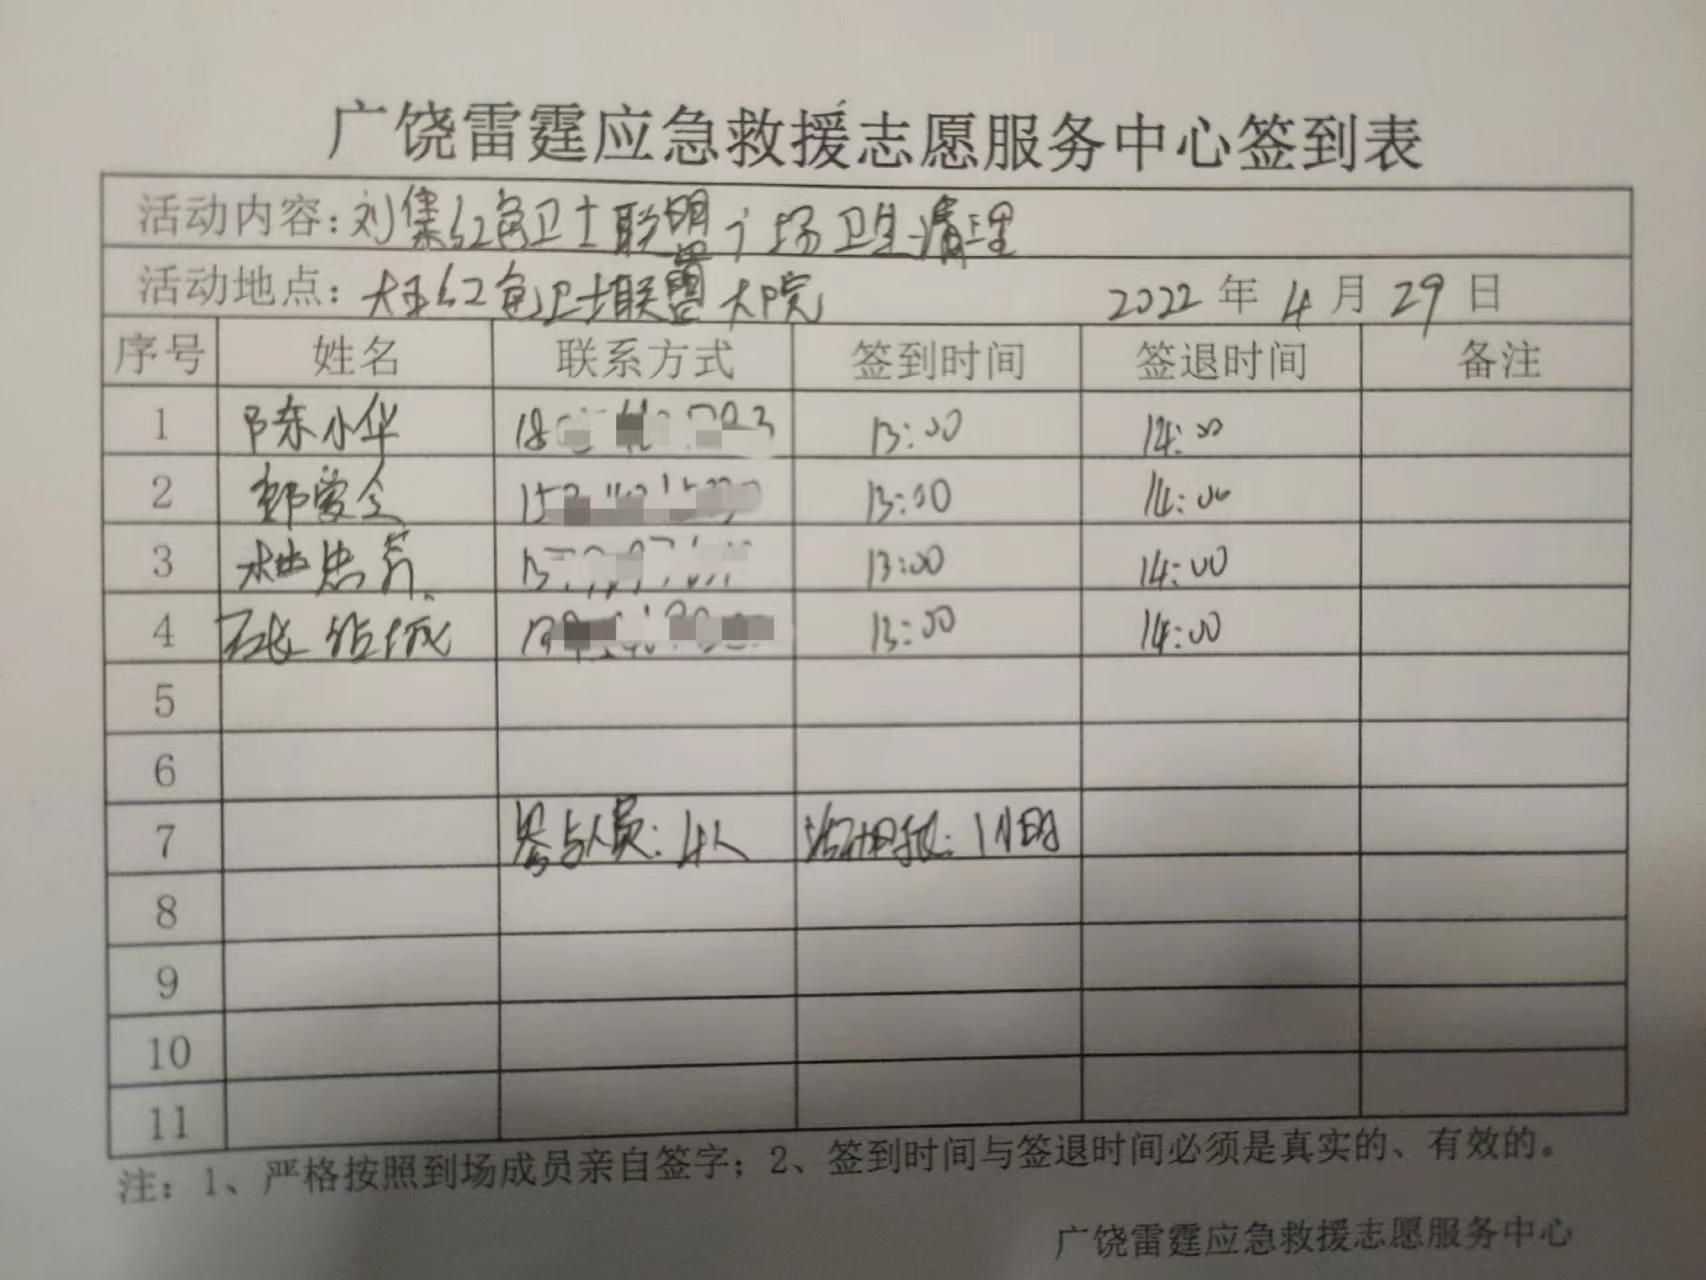 广饶雷霆应急救援志愿服务中心签到表
活动内容：刘集红色卫士联盟广场卫生清理
活动地点：大王红色卫士联盟大院 2022年4月29日
序号 姓名 联系方式 签到时间 签退时间 备注
1 陈小华 13:00 14:00
2 13:00 14:00
3 13:00 14:00
4 13:00 14:00
5
6
7 参与人员：4人 1小时
8
9
10
11
注：1、严格按照到场成员亲自签字；2、签到时间与签退时间必须是真实的、有效的。
广饶雷霆应急救援志愿服务中心